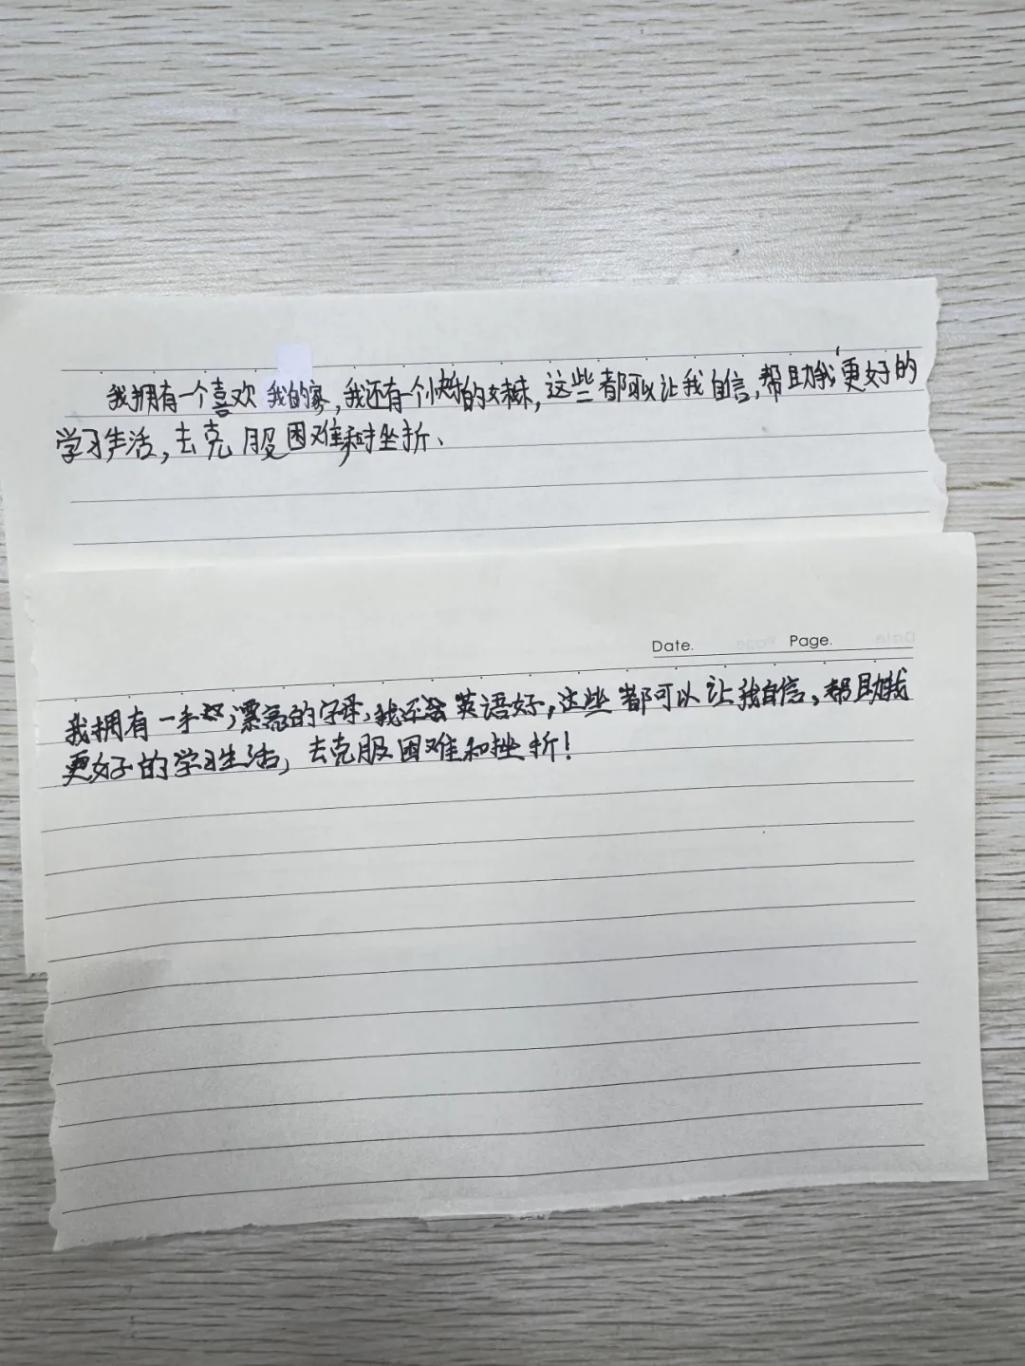 我拥有一个喜欢我的家,我还有个快乐的妹妹,这些都可以让我自信,帮助我更好的
学习生活,去克服困难和挫折、
Date. Page.
我拥有一手漂亮的字,我还英语好,这些都可以让我自信,帮助我
更好的学习生活,去克服困难和挫折!